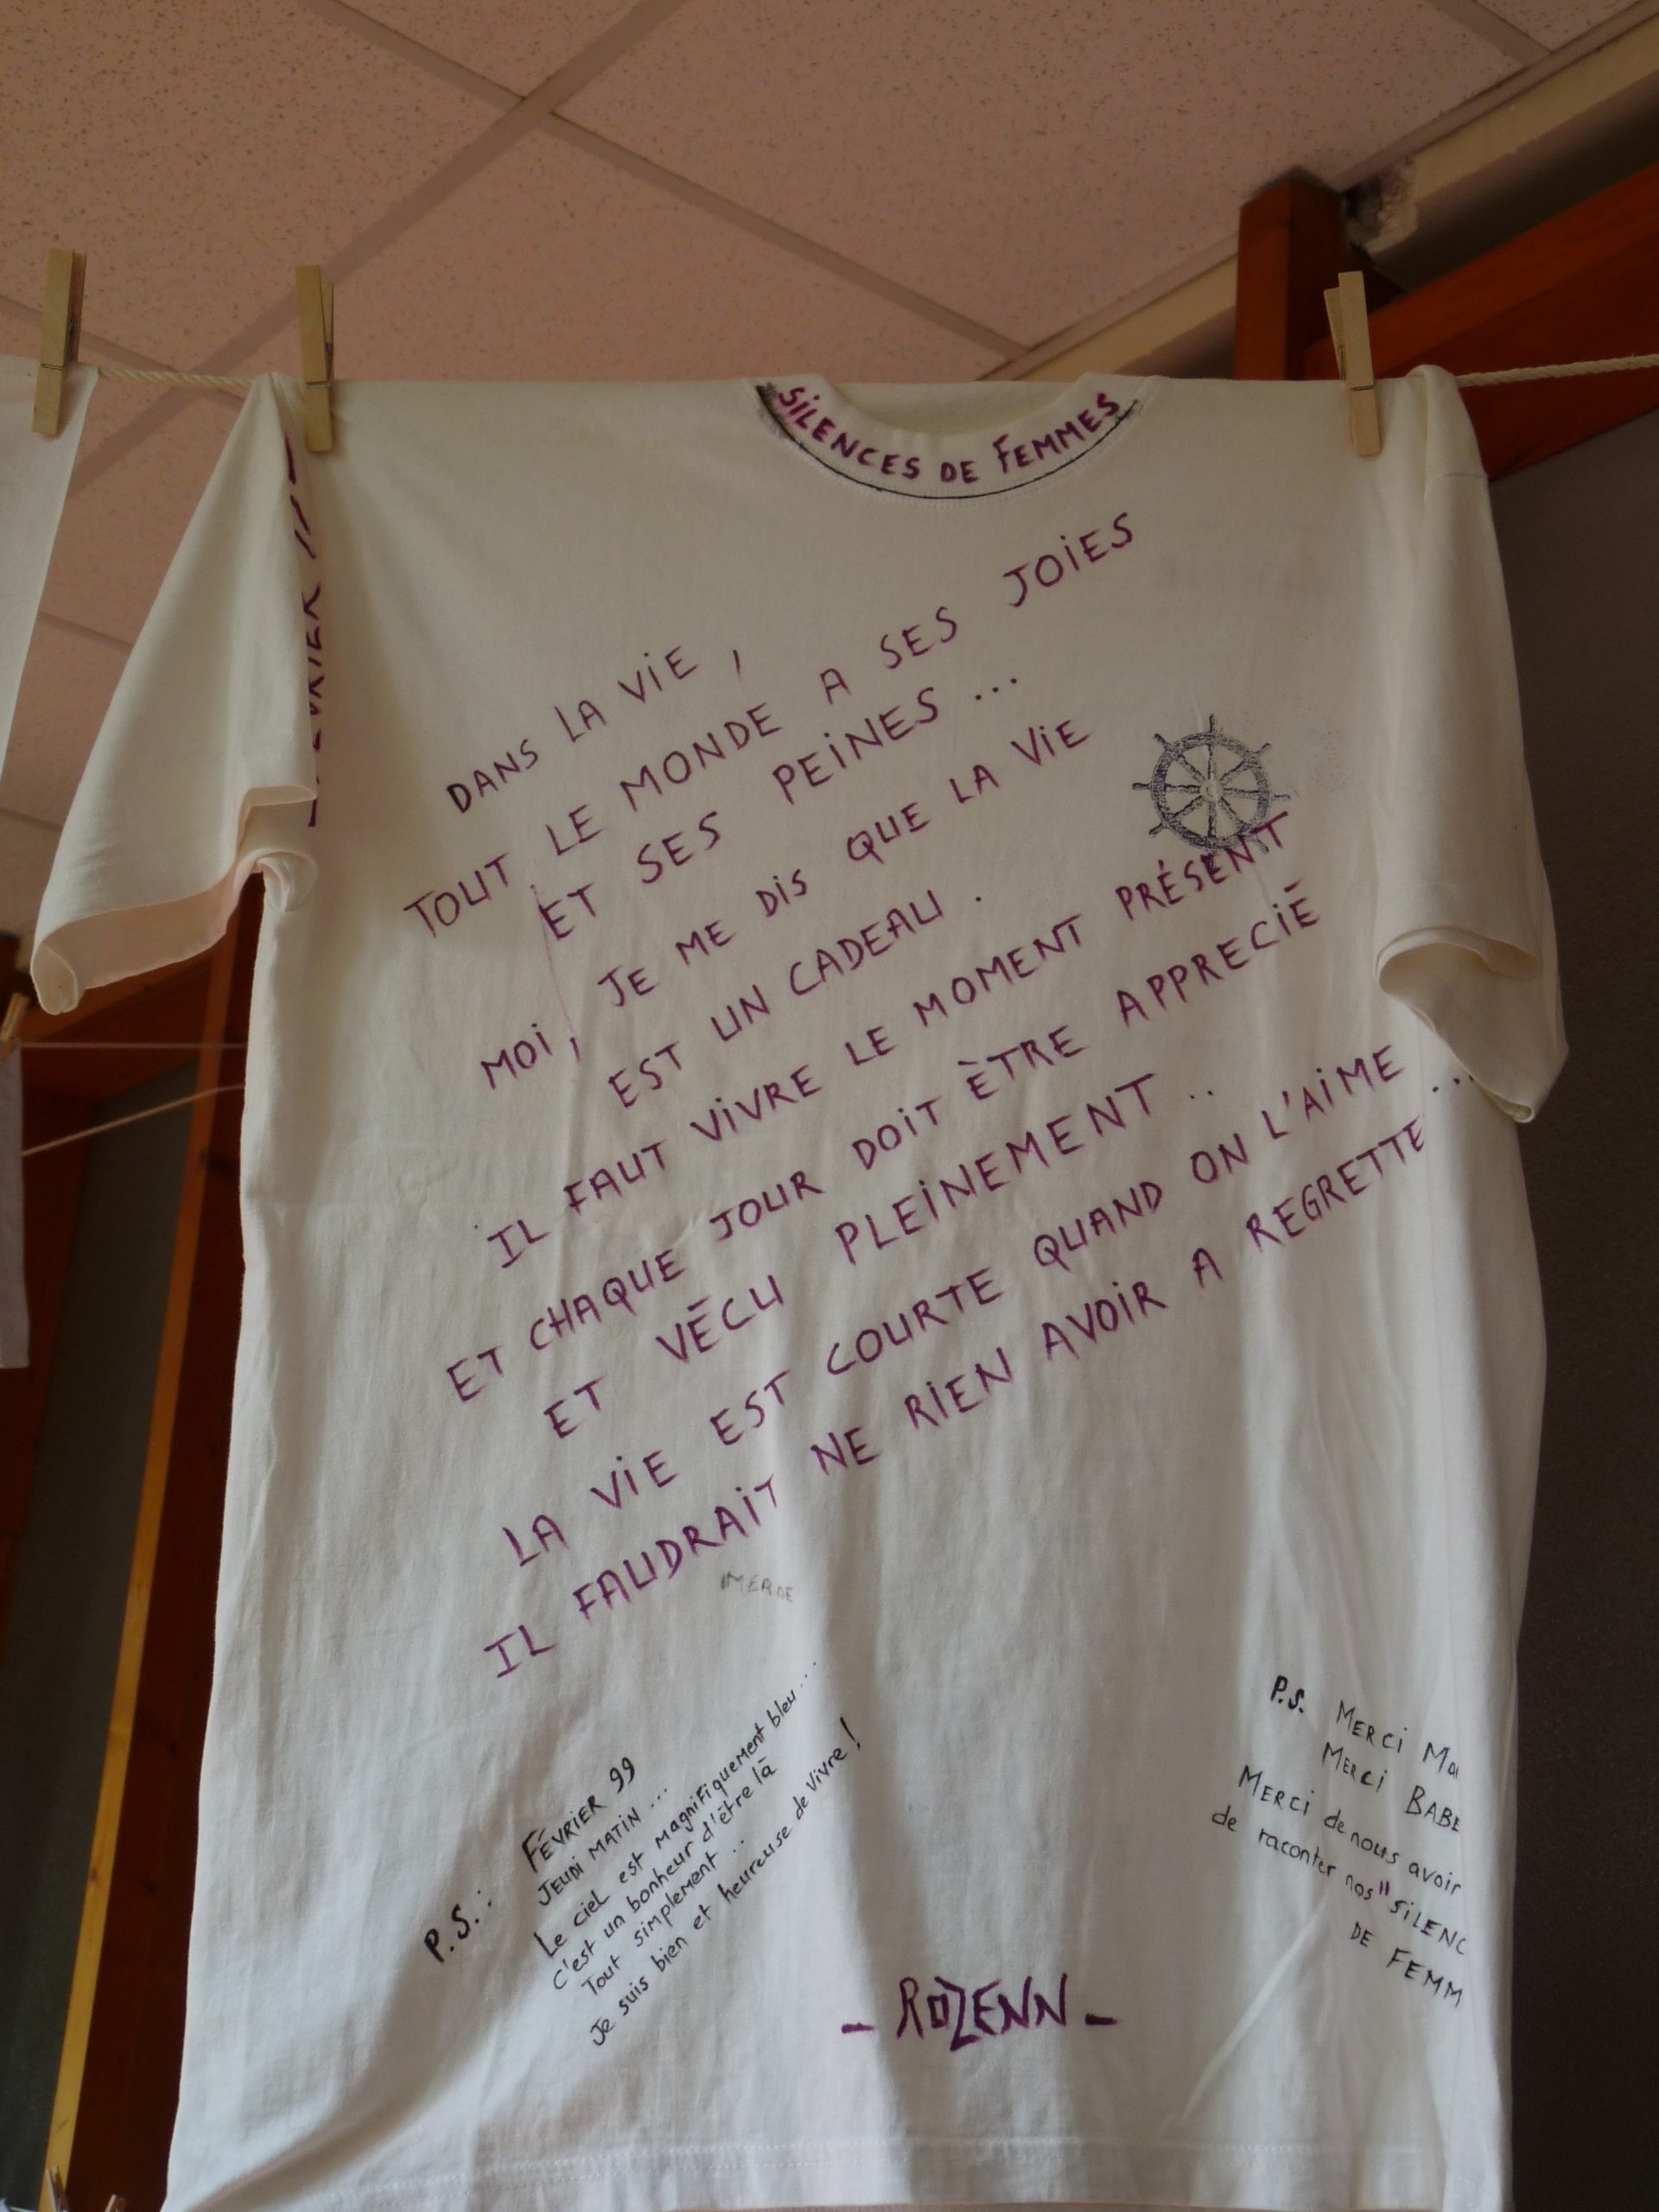 SILENCES DE FEMMES
DANS LA VIE,
TOUT LE MONDE A SES JOIES
ET SES PEINES ...
MOI, JE ME DIS QUE LA VIE
EST UN CADEAU.
IL FAUT VIVRE LE MOMENT PRÉSENT
ET CHAQUE JOUR DOIT ÈTRE APPRECIÉ
ET VÉCU PLEINEMENT ..
LA VIE EST COURTE QUAND ON L'AIME
IL FAUDRAIT NE RIEN AVOIR A REGRETTE ...
MERDE
P.S.: FÉVRIER 99
JEUDI MATIN ...
Le ciel est magnifiquement bleu ...
C'est un bonheur d'être là
Tout simplement ...
Je suis bien et heureuse de vivre !
P.S. MERCI
MERCI BABE
MERCI de nous avoir
de raconter nos "SILENC
DE FEMM
- ROZENN -